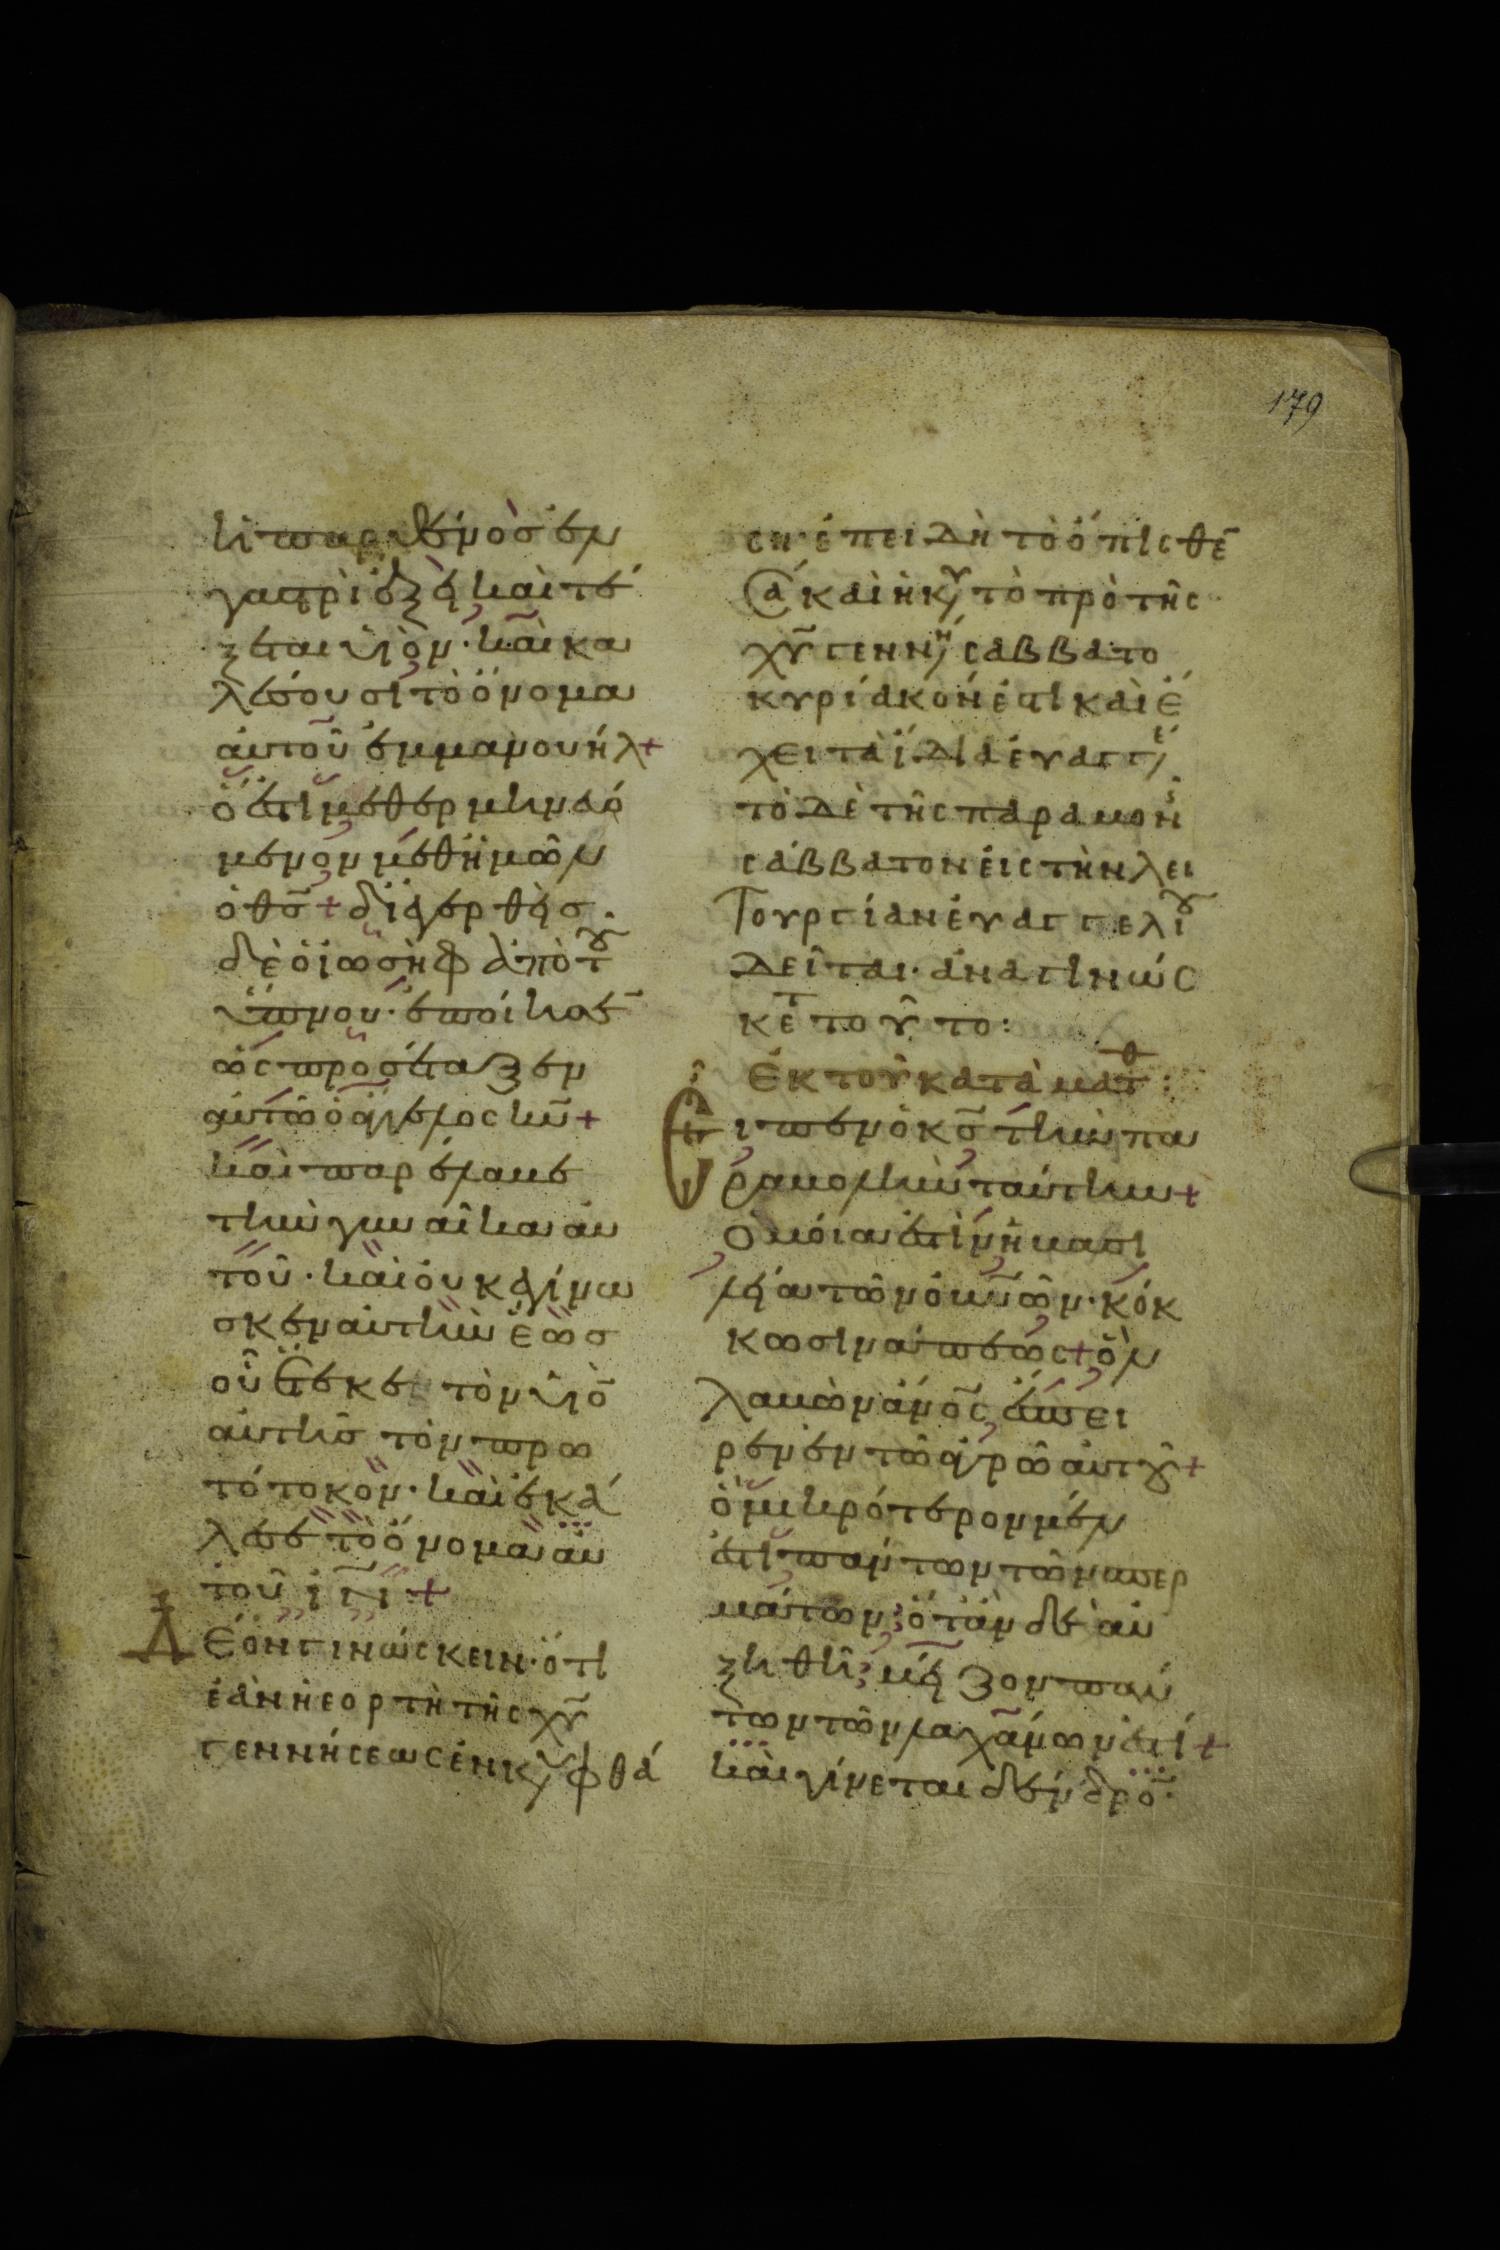 179
ἡ παρθένος ἐν
γαστρὶ ἕξει καὶ τέ
ξεται υἱὸν· καὶ κα
λέσουσι τὸ ὄνομα
αὐτοῦ ἐμμανουήλ +
ὅ ἐστι μεθερμηνευό
μενον μεθ ἡμῶν
ὁ θς + διεγερθεὶς
δὲ ὁ ἰωσὴφ ἀπὸ τοῦ
ὕπνου· ἐποίησε
ὡς προσέταξεν
αὐτῶ ὁ ἄγγελος κυ +
καὶ παρέλαβε
τὴν γυναῖκα αὐ
τοῦ· καὶ οὐκ ἐγίνω
σκεν αὐτὴν ἕως
οὗ ἔτεκε τὸν υἱὸ
αὐτῆς τὸν πρω
τότοκον· καὶ ἐκά
λεσε τὸ ὄνομα αὐ
τοῦ ιν +
Δέον γινώσκειν· ὅτι
ἐὰν ἡ ἑορτὴ τῆς χυ
γεννήσεως ἐν κυ φθά
ση· ἐπειδὴ τὸ ὄπισθε
καὶ ἡ κυ τὸ πρὸ τῆς
χυ γενν σάββατο
κυριακόν ἐστι καὶ ἔ
χει τὰ ἴδια ἐυαγγ
τὸ δὲ τῆς παραμον
σάββατον εἰς τὴν λει
τουργίαν ἐυαγγελίου
δεῖται· ἀναγινώς
κετ τοῦτο:
Ἐκ τοῦ κατὰ ματθ:
Εἶπεν ὁ κς τὴν πα
ραβολὴν ταύτην +
Ὁμοία ἐστὶν ἡ βασι
λεία τῶν οὐνῶν· κόκ
κω σινάπεως + ὃν
λαβὼν ἄνος ἔσπει
ρεν ἐν τῶ ἀγρῶ αὐτοῦ +
ὃ μικρότερον μέν
ἐστι πάντων τῶν σπερ
μάτων· ὅταν δὲ αὐ
ξηθῆ· μεῖζον πάν
των τῶν λαχάνων ἐστί +
καὶ γίνεται δένδρο·